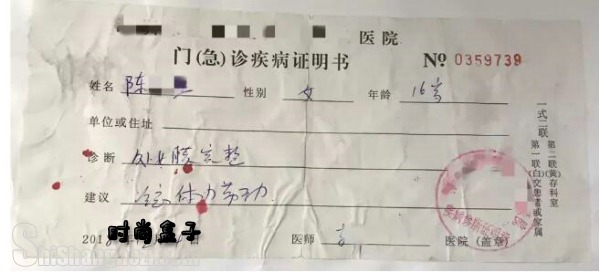 医院
门(急)诊疾病证明书 № 0359739
姓名 陈 性别 女 年龄 16岁
单位或住址
诊断 处女膜完整
建议 体力劳动
时尚盒子
医师 医院(盖章)
一式二联
第一联(白)交患者或家属
第二联(黄)存科室
疾病诊断证明